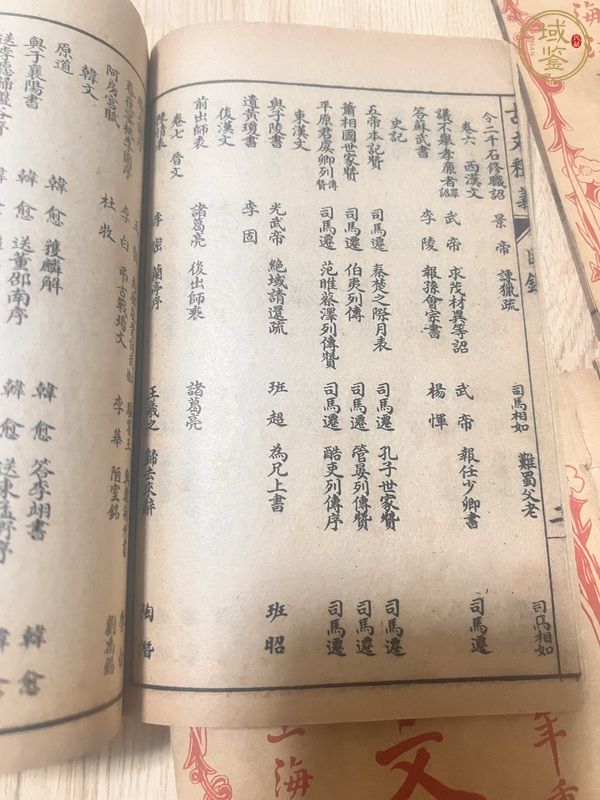 域鉴
目錄
二
令二千石修職詔 景帝 諫獵疏 司馬相如 難蜀父老 司馬相如
卷六 西漢文
議不舉孝廉者罪詔 武帝 求茂材異等詔 武帝 報任少卿書 司馬遷
答蘇武書 李陵 報孫會宗書 楊惲
史記
五帝本記贊 司馬遷 秦楚之際月表 司馬遷 孔子世家贊 司馬遷
蕭相國世家贊 司馬遷 伯夷列傳 司馬遷 管晏列傳贊 司馬遷
平原君虞卿列傳贊 司馬遷 范睢蔡澤列傳贊 司馬遷 酷吏列傳序 司馬遷
東漢文
與子陵書 光武帝 絶域請還疏 班超 為兄上書 班昭
遺黃瓊書 李固
後漢文
前出師表 諸葛亮 後出師表 諸葛亮
卷七 晉文
陳情表 李密 蘭亭序 王羲之 歸去來辭 陶潛
李白 弔古戰場文 李華 陋室銘 劉禹錫
阿房宮賦 杜牧
韓文
原道 韓愈 獲麟解 韓愈
與于襄陽書 韓愈 送董邵南序 韓愈 答李翊書 韓愈
送李愿歸盤谷序 韓愈 送東孟野序 韓愈
上海
文
年